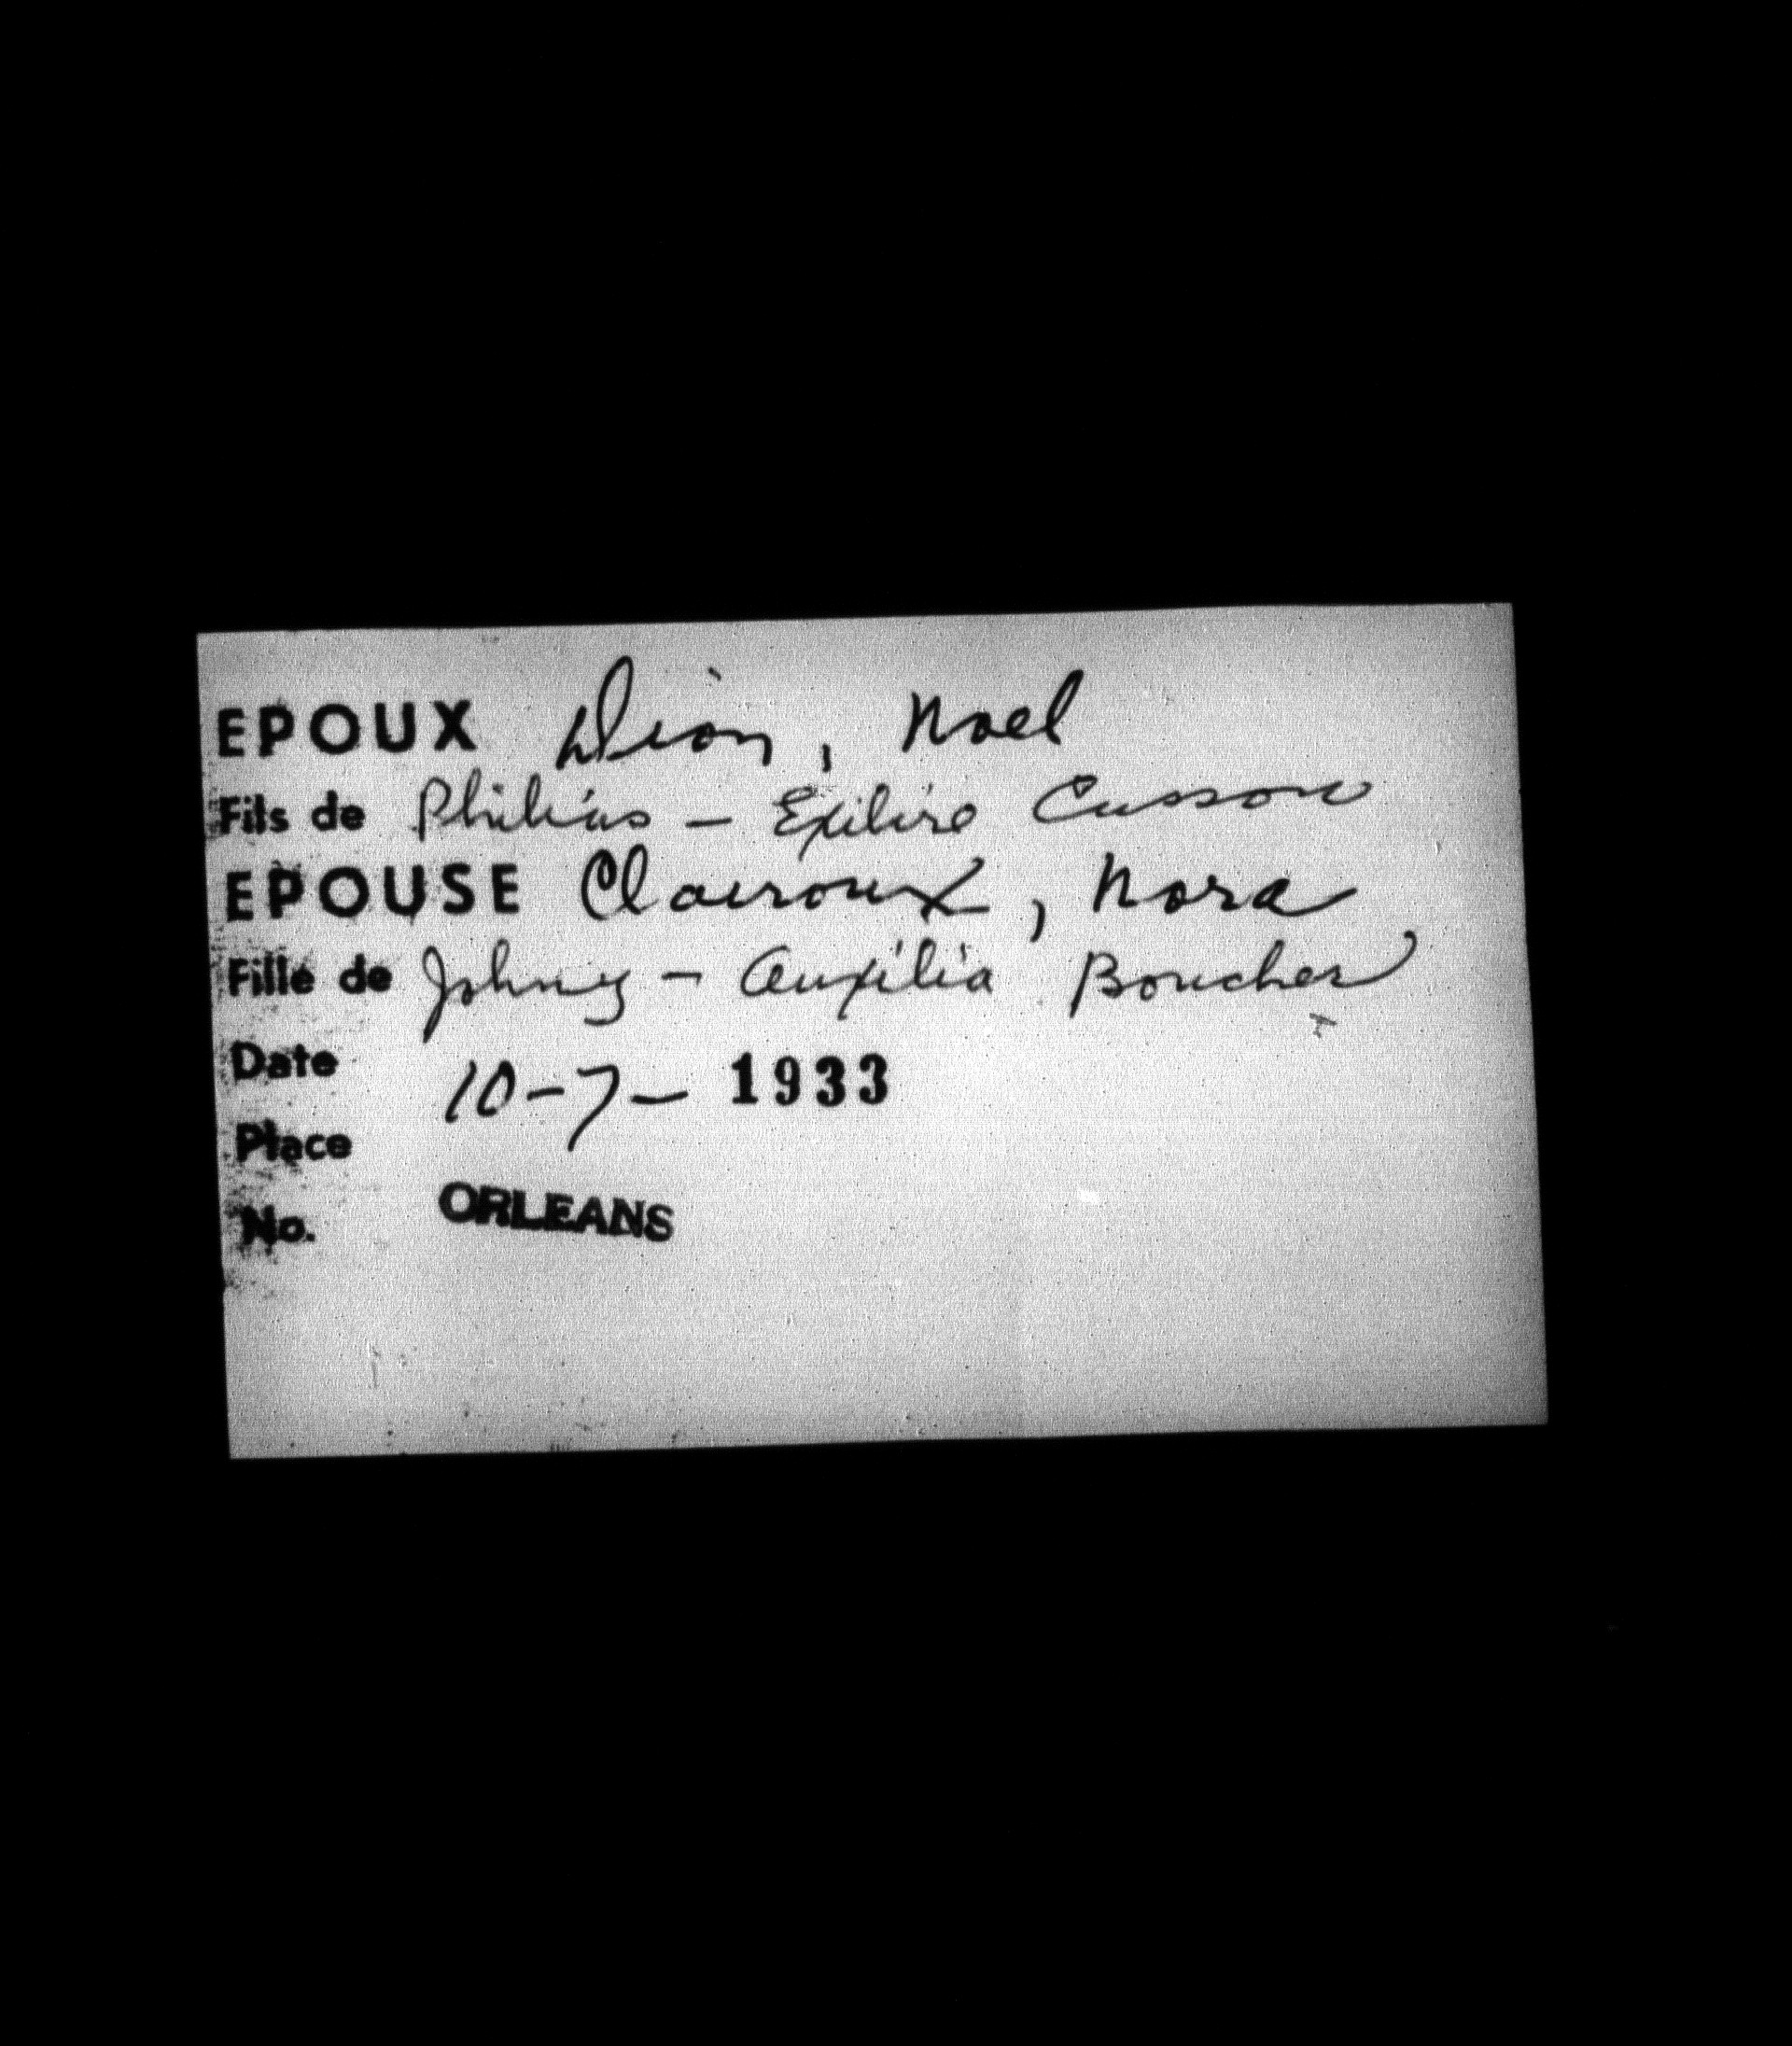 EPOUX Dion, Noel
Fils de Philias - Exilire Cusson
EPOUSE Clairoux, Nora
Fille de Johny - Auxilia Boucher
Date 10-7- 1933
Place
No. ORLEANS